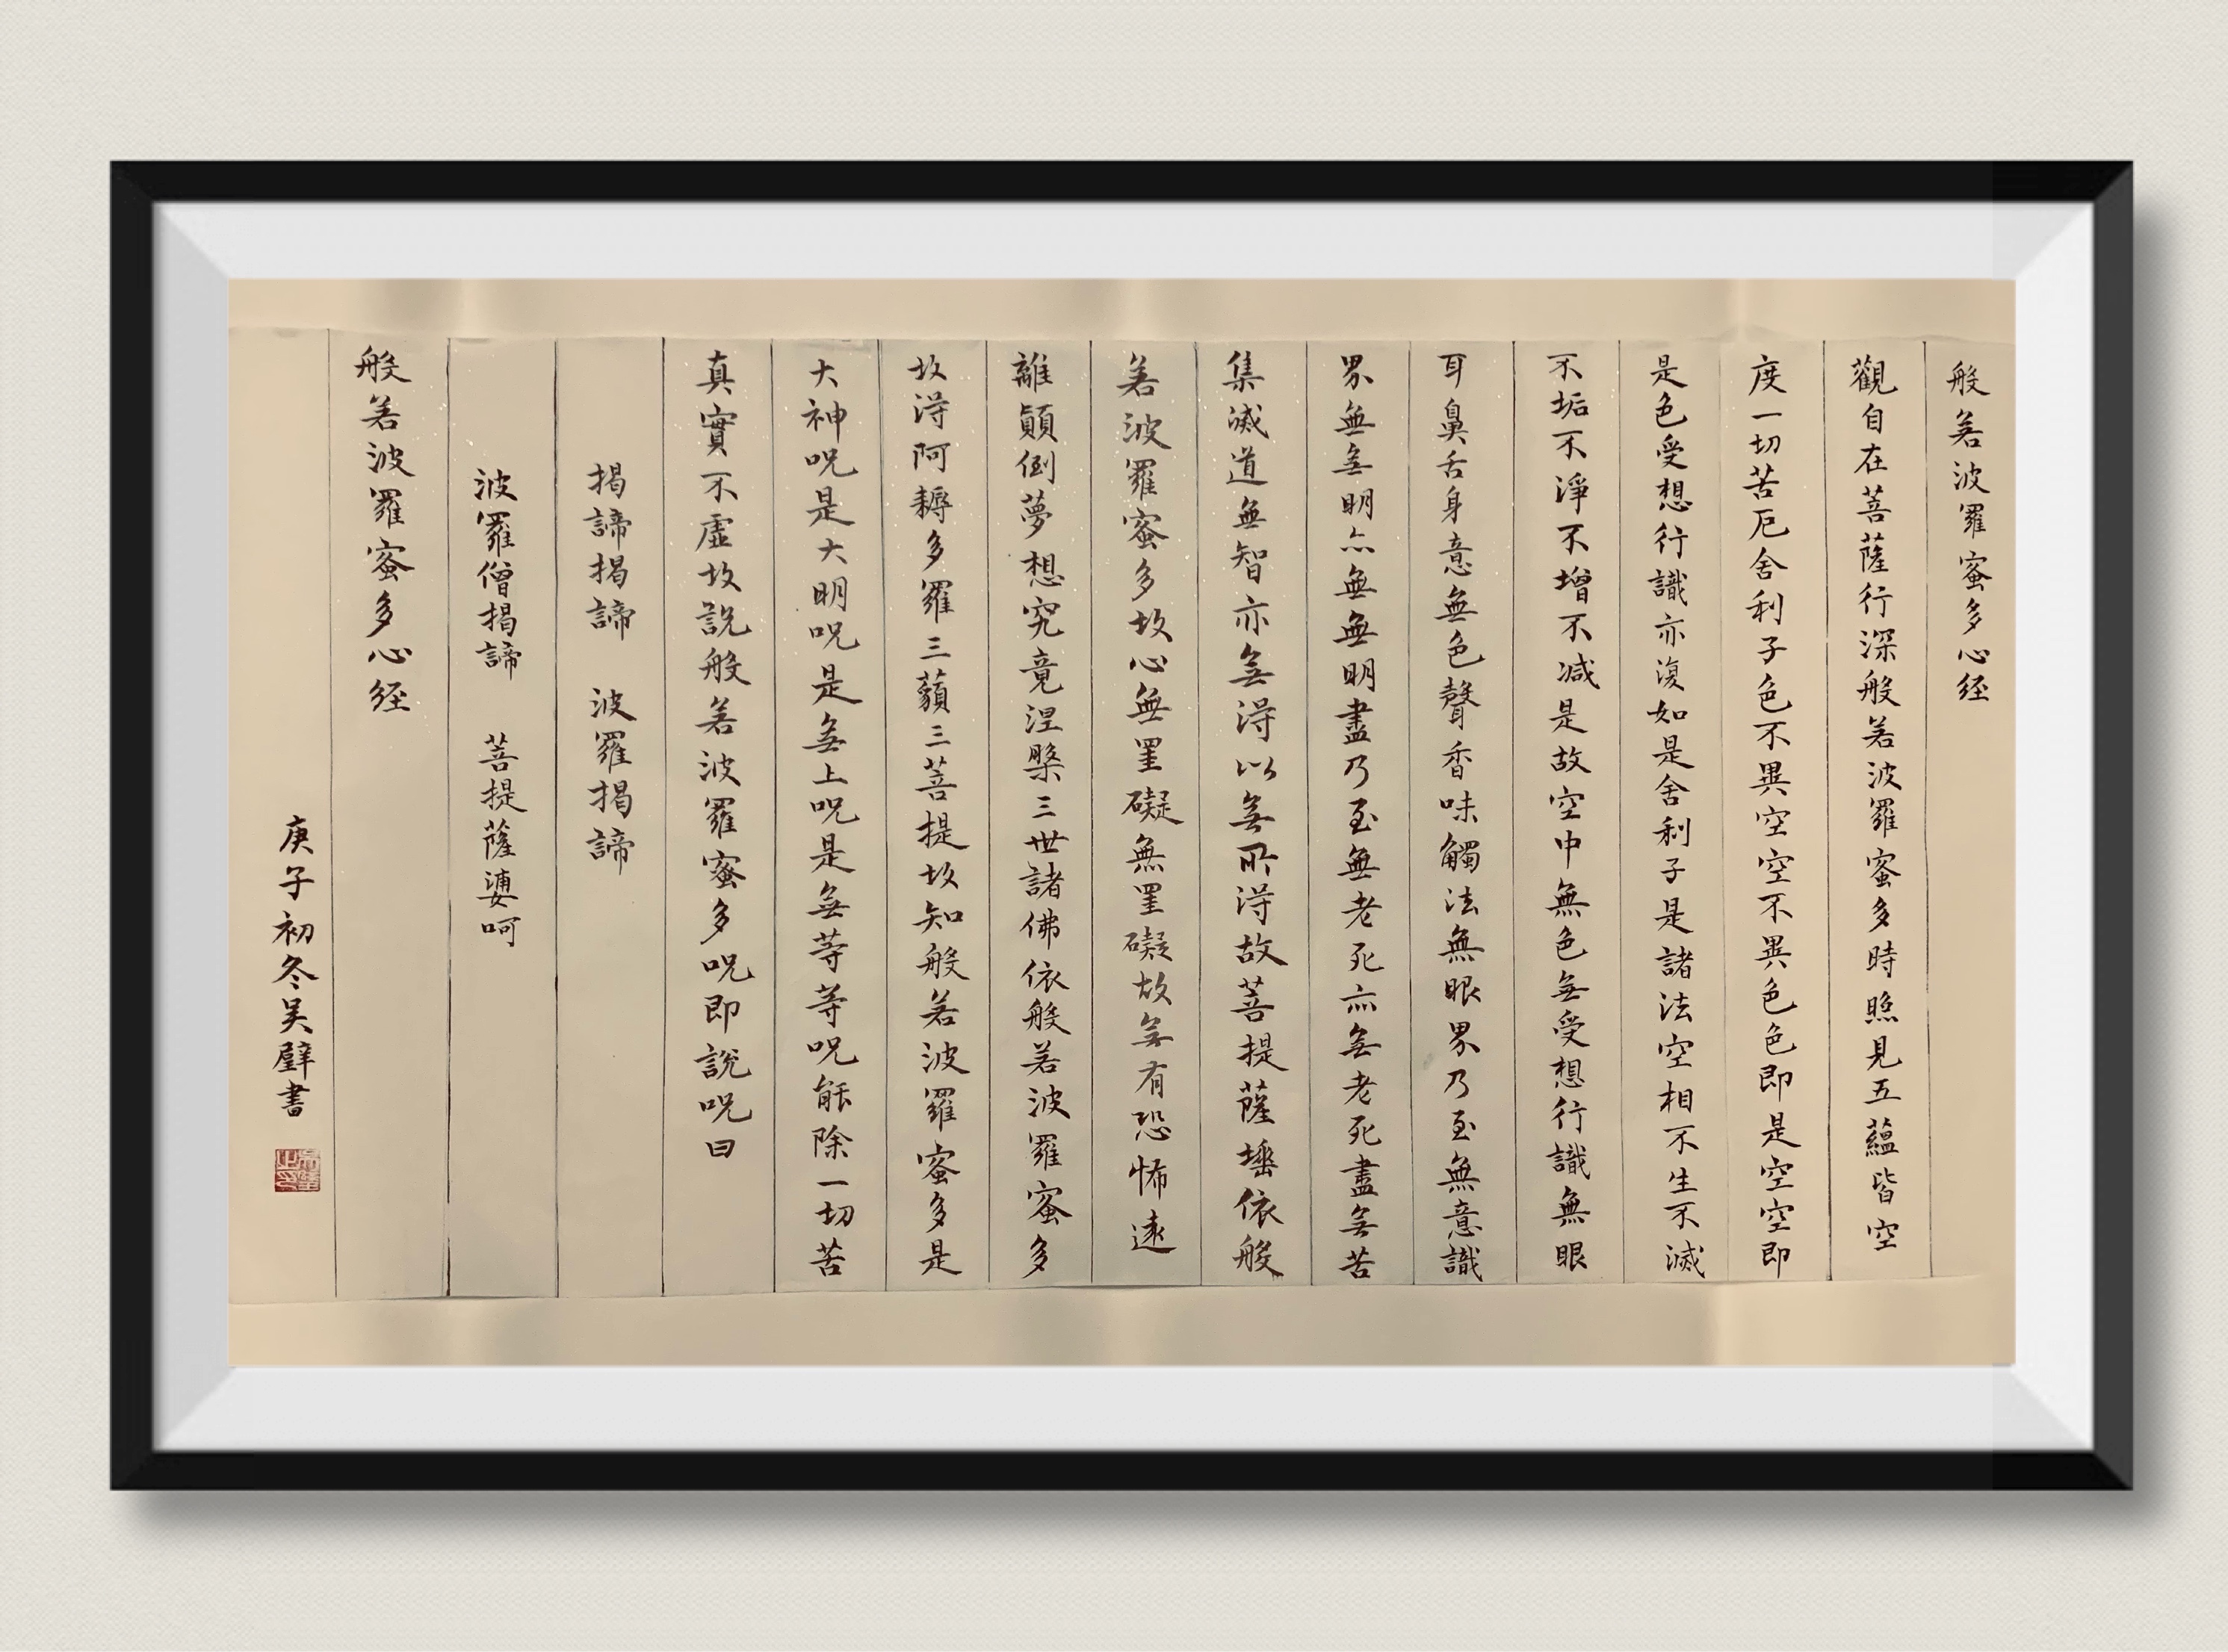 般若波羅蜜多心経
觀自在菩薩行深般若波羅蜜多時照見五蘊皆空
度一切苦厄舍利子色不異空空不異色色即是空空即
是色受想行識亦復如是舍利子是諸法空相不生不滅
不垢不淨不增不減是故空中無色無受想行識無眼
耳鼻舌身意無色聲香味觸法無眼界乃至無意識
界無無明亦無無明盡乃至無老死亦無老死盡無苦
集滅道無智亦無得以無所得故菩提薩埵依般
若波羅蜜多故心無罣礙無罣礙故無有恐怖遠
離顛倒夢想究竟涅槃三世諸佛依般若波羅蜜多
故得阿耨多羅三藐三菩提故知般若波羅蜜多是
大神呪是大明呪是無上呪是無等等呪能除一切苦
真實不虛故說般若波羅蜜多呪即說呪曰
揭諦揭諦 波羅揭諦
波羅僧揭諦 菩提薩婆呵
般若波羅蜜多心経
庚子初冬吴璧書